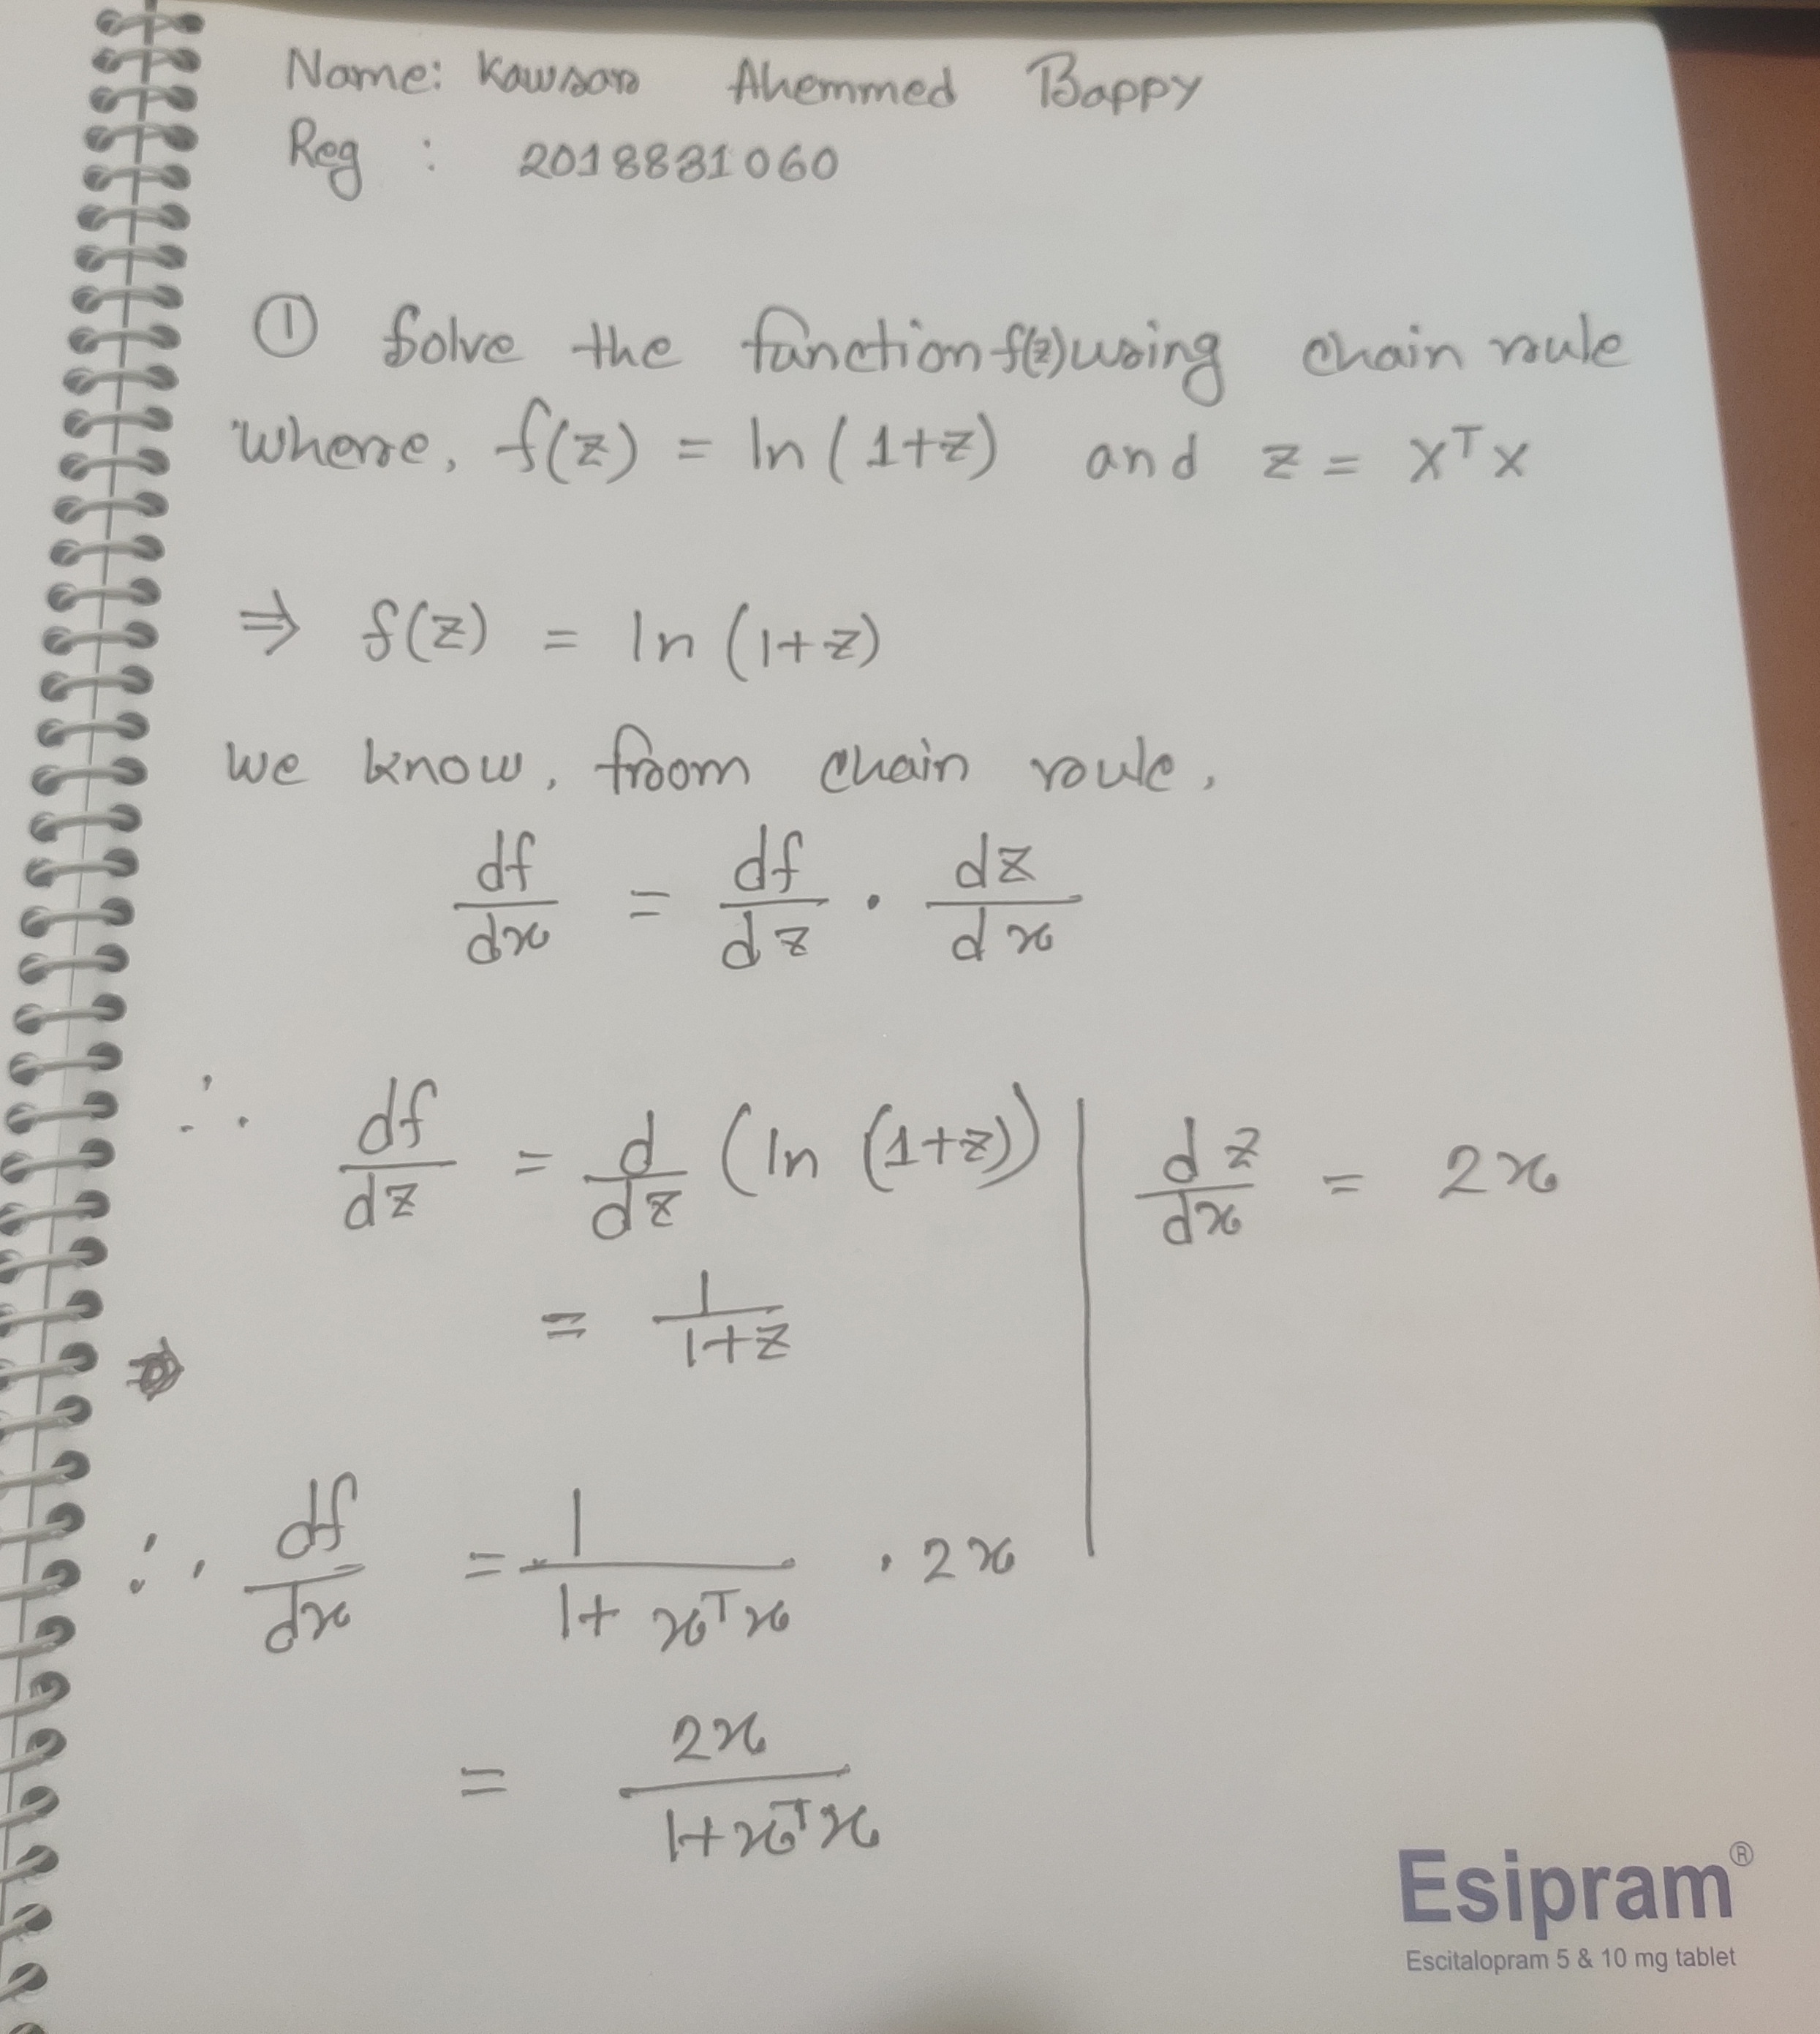 Name: Kawsar Ahemmed Bappy
Reg : 2018831060
① Solve the function f(z) using chain rule
where, f(z) = ln(1+z) and z = x^T x
⇒ f(z) = ln (1+z)
we know, from chain rule,
df/dx = df/dz · dz/dx
∴ df/dz = d/dz (ln (1+z)) | dz/dx = 2x
= 1/(1+z)
∴ df/dx = 1/(1+x^T x) · 2x
= 2x/(1+x^T x)
Esipram®
Escitalopram 5 & 10 mg tablet